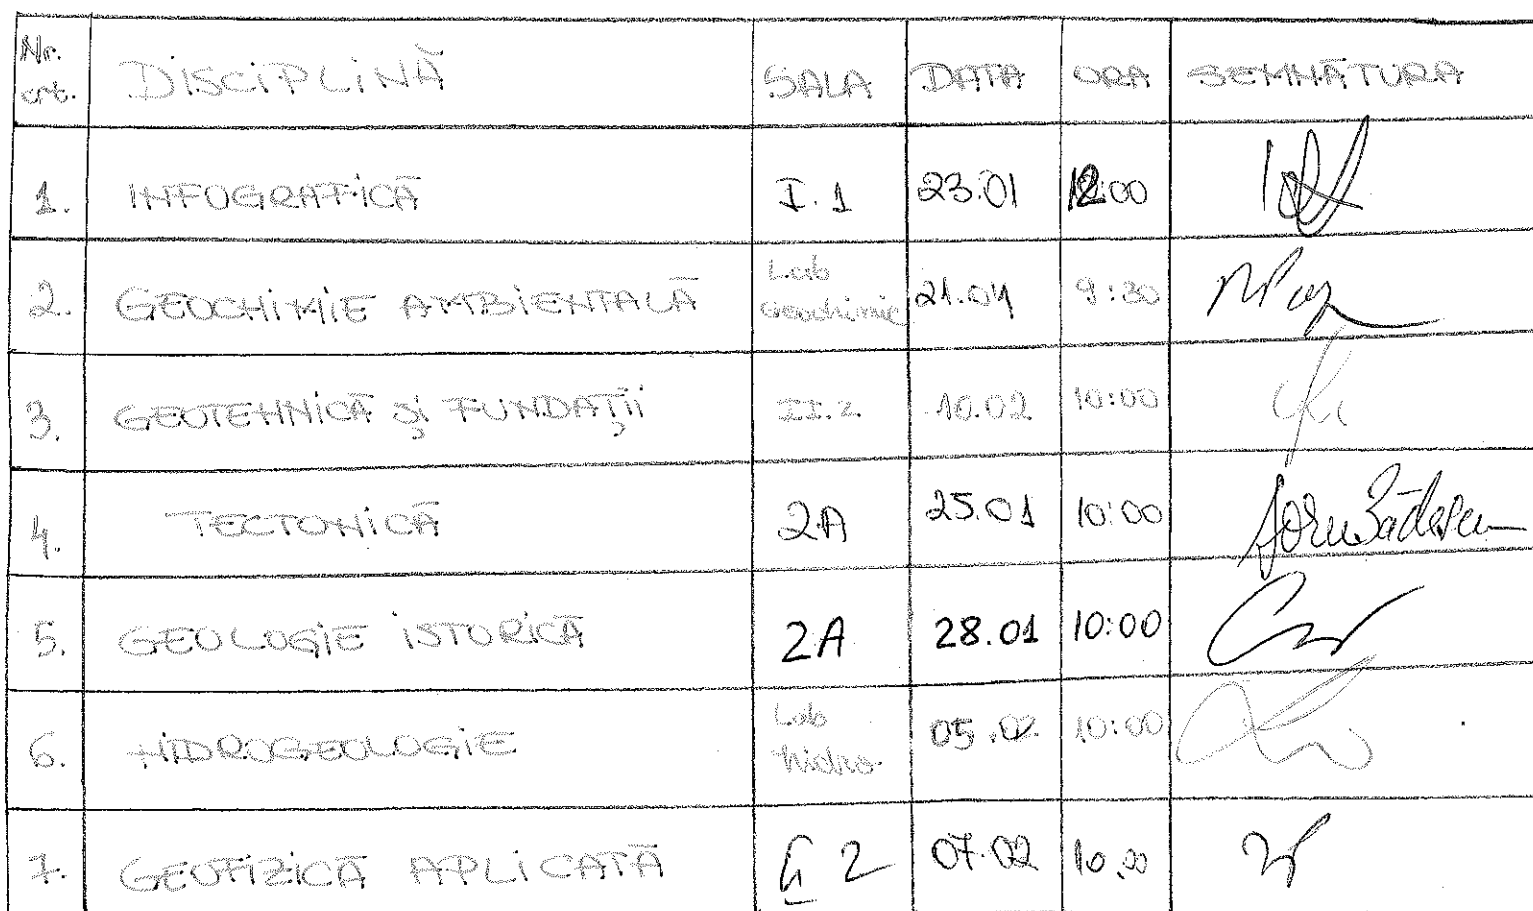 Nr. crt. DISCIPLINĂ SALA DATA ORA SEMNĂTURA
1. INFOGRAFICĂ I.1 23.01 12:00
2. GEOCHIMIE AMBIENTALĂ Lab Geochimie 21.01 9:30
3. GEOTEHNICĂ și FUNDAȚII II.2 10.02 10:00
4. TECTONICĂ 2A 25.01 10:00
5. GEOLOGIE ISTORICĂ 2A 28.01 10:00
6. HIDROGEOLOGIE Lab hidro. 05.02 10:00
7. GEOFIZICĂ APLICATĂ 2 07.02 10.00